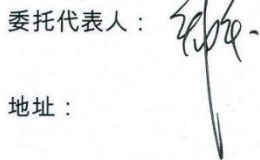 委托代表人：
地址：